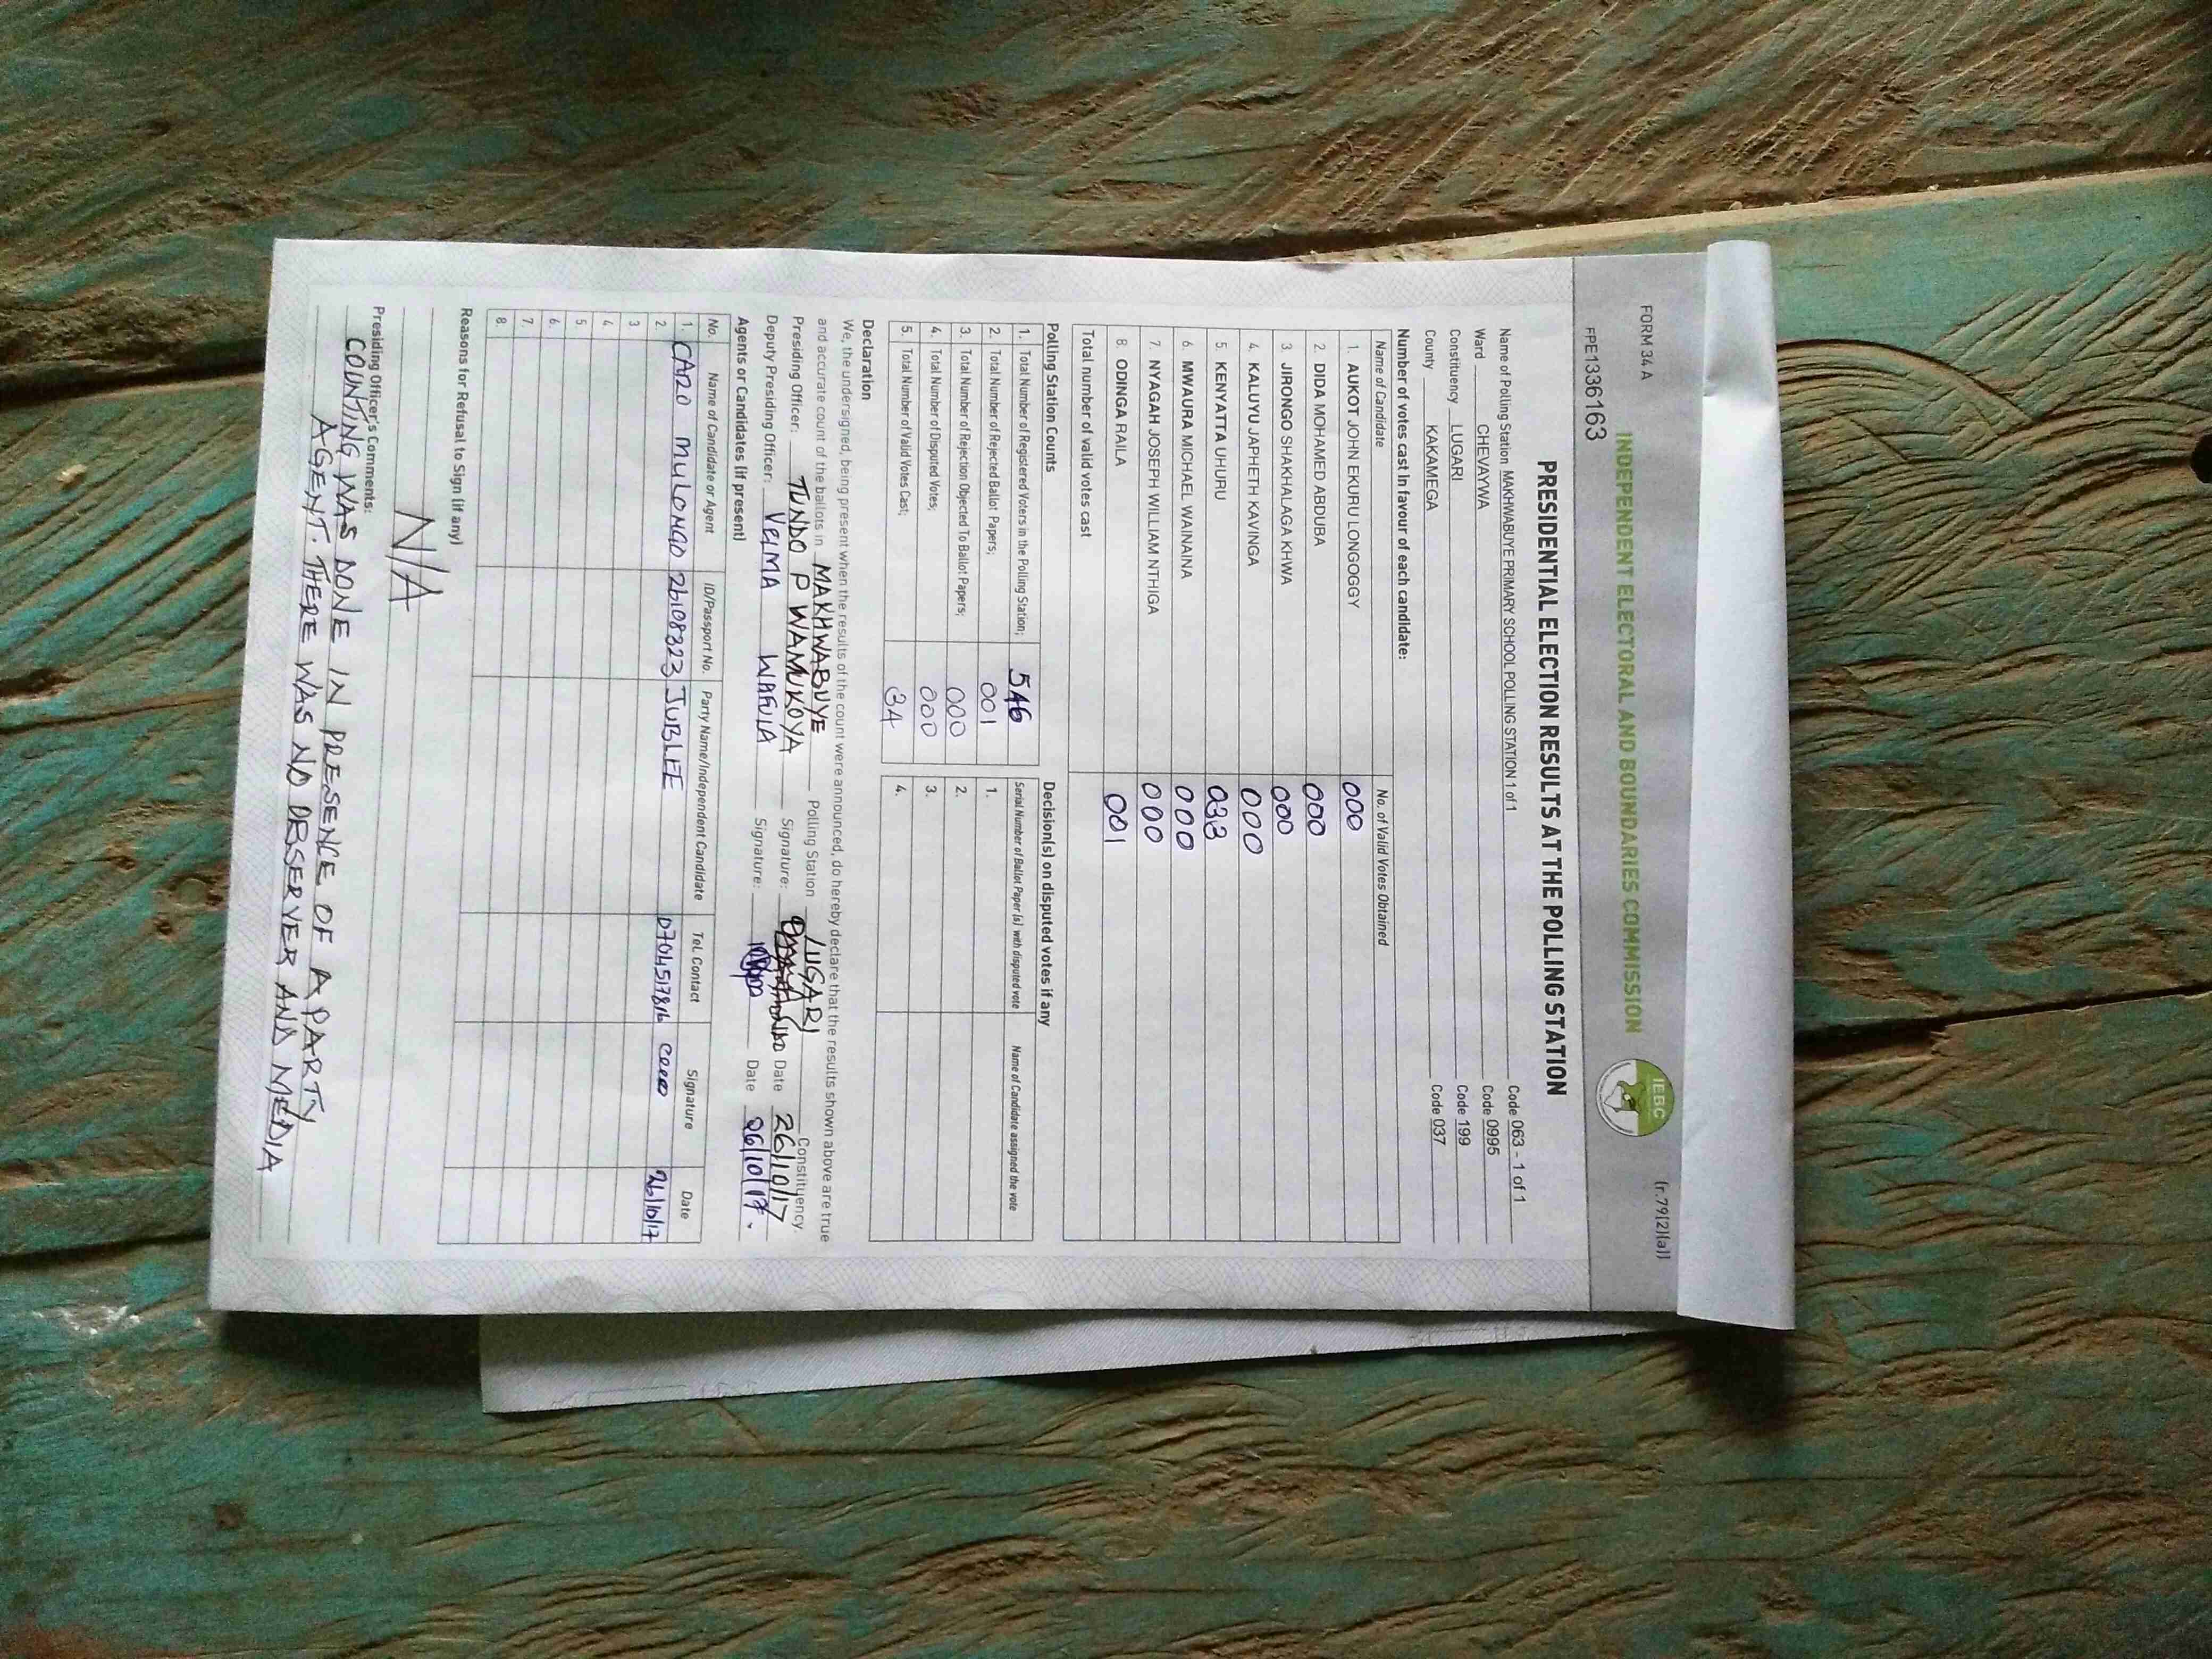 FORM 34 A
(r.79(2)(a))
INDEPENDENT ELECTORAL AND BOUNDARIES COMMISSION
IEBC
FPE1336163
PRESIDENTIAL ELECTION RESULTS AT THE POLLING STATION
Name of Polling Station MAKHWABUYE PRIMARY SCHOOL POLLING STATION 1 of 1 Code 063 - 1 of 1
Ward CHEVAYWA Code 0995
Constituency LUGARI Code 199
County KAKAMEGA Code 037
Number of votes cast in favour of each candidate:
Name of Candidate No. of Valid Votes Obtained
1. AUKOT JOHN EKURU LONGOGGY 000
2. DIDA MOHAMED ABDUBA 000
3. JIRONGO SHAKHALAGA KHWA 000
4. KALUYU JAPHETH KAVINGA 000
5. KENYATTA UHURU 033
6. MWAURA MICHAEL WAINAINA 000
7. NYAGAH JOSEPH WILLIAM NTHIGA 000
8. ODINGA RAILA 001
Total number of valid votes cast
Polling Station Counts
1. Total Number of Registered Voters in the Polling Station; 546
2. Total Number of Rejected Ballot Papers; 001
3. Total Number of Rejection Objected To Ballot Papers; 000
4. Total Number of Disputed Votes; 000
5. Total Number of Valid Votes Cast; 34
Decision(s) on disputed votes if any
Serial Number of Ballot Paper (s) with disputed vote Name of Candidate assigned the vote
1.
2.
3.
4.
Declaration
We, the undersigned, being present when the results of the count were announced, do hereby declare that the results shown above are true
and accurate count of the ballots in MAKHWABUYE Polling Station LUGARI Constituency.
Presiding Officer: TUNDO P WAMUKOYA Signature: Date 26/10/17
Deputy Presiding Officer: VELMA WAFULA Signature: Date 26/10/17.
Agents or Candidates (if present)
No. Name of Candidate or Agent ID/Passport No. Party Name/Independent Candidate Tel. Contact Signature Date
1. CARO MULONGO 26108323 JUBLEE 0704517816 26/10/17
2
3
4
5
6.
7.
8.
Reasons for Refusal to Sign (if any)
N/A
Presiding Officer's Comments:
COUNTING WAS DONE IN PRESENCE OF A PARTY
AGENT. THERE WAS NO OBSERVER AND MEDIA